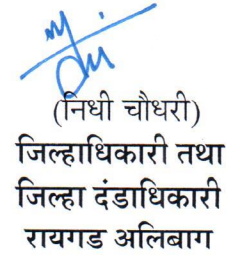 (निधी चौधरी)
जिल्हाधिकारी तथा
जिल्हा दंडाधिकारी
रायगड अलिबाग